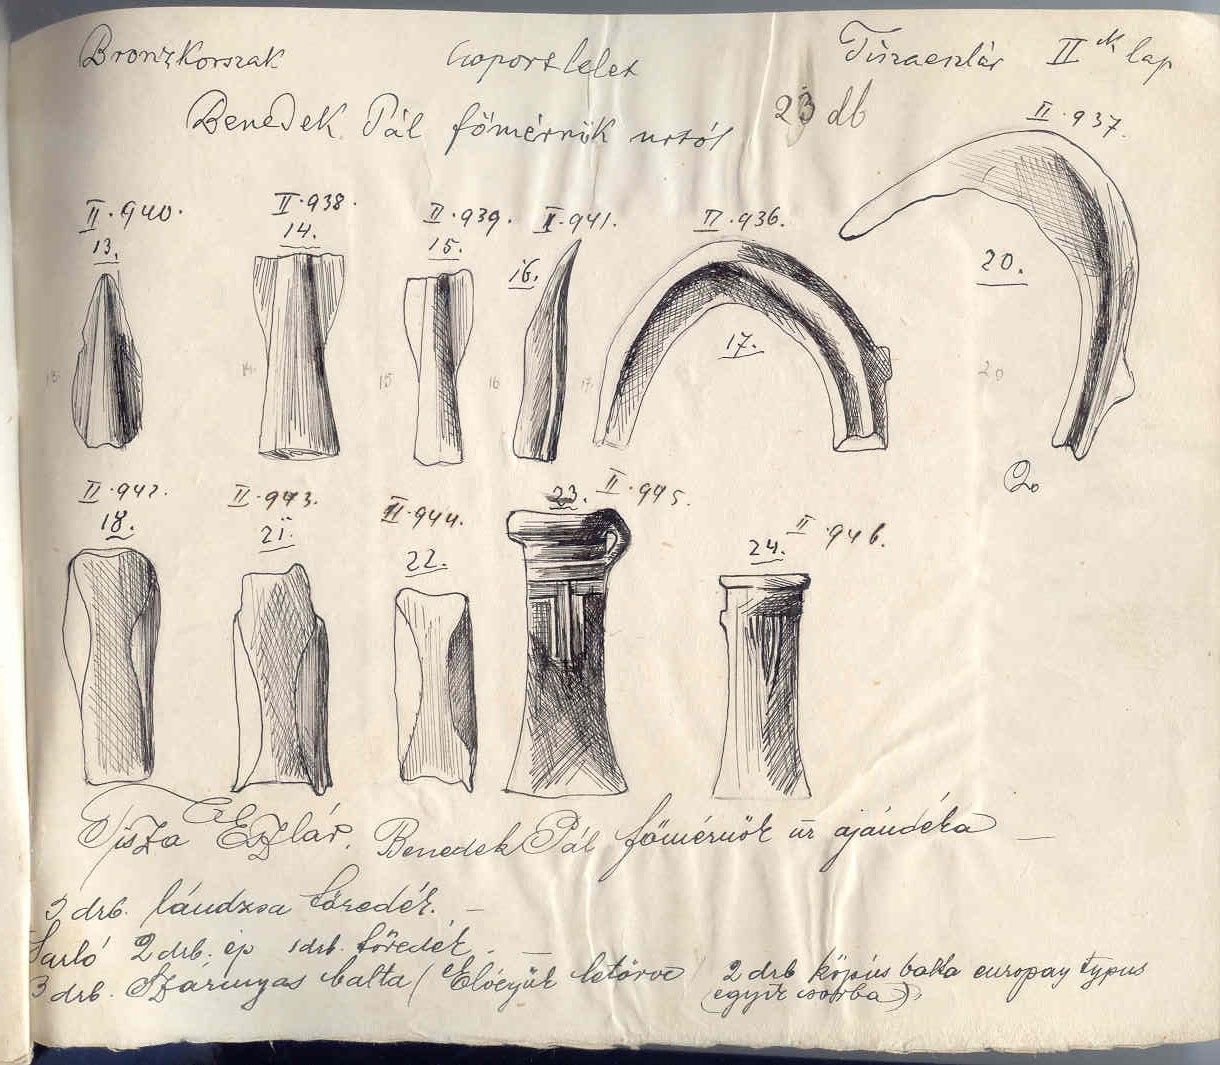 Bronzkorszak csoport lelet Tiszaeszlár IIik lap
Benedek Pál főmérnök urtól 23 db
II.937.
II.940. II.938. II.939. II.941. II.936.
13. 14. 15. 16. 17. 20.
13. 14. 15 16 17. 20
20
II.942. II.943. II.944. 23. II.945. II.946.
18. 21. 22. 24.
Tisza Eszlár. Benedek Pál főmérnök úr ajándéka —
drb. lándzsa töredék. —
Sarló 2 drb. ép 1 drb. töredék. —
3 drb. Szárnyas balta (Előcsúk letörve 2 drb köpüs balta europay typus
(egyik csorba)